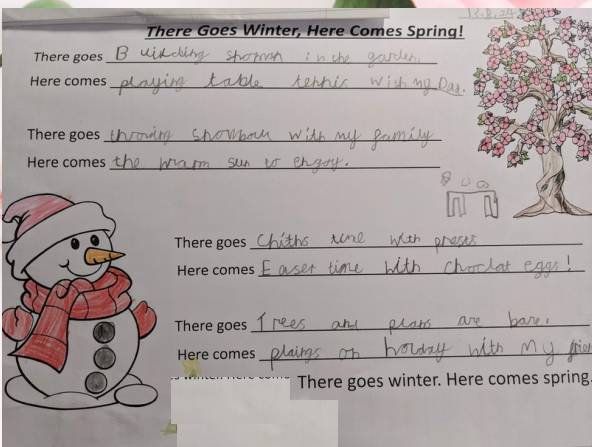 There Goes Winter, Here Comes Spring!
There goes Building snoman in the garden.
Here comes playing table tennis with my Dad.
There goes throing snowball with my family
Here comes the warm sun to enjoy.
There goes time with
Here comes Easer time with choclat eggs!
There goes Trees and plans are bare.
Here comes on holiday with my
There goes winter. Here comes spring.